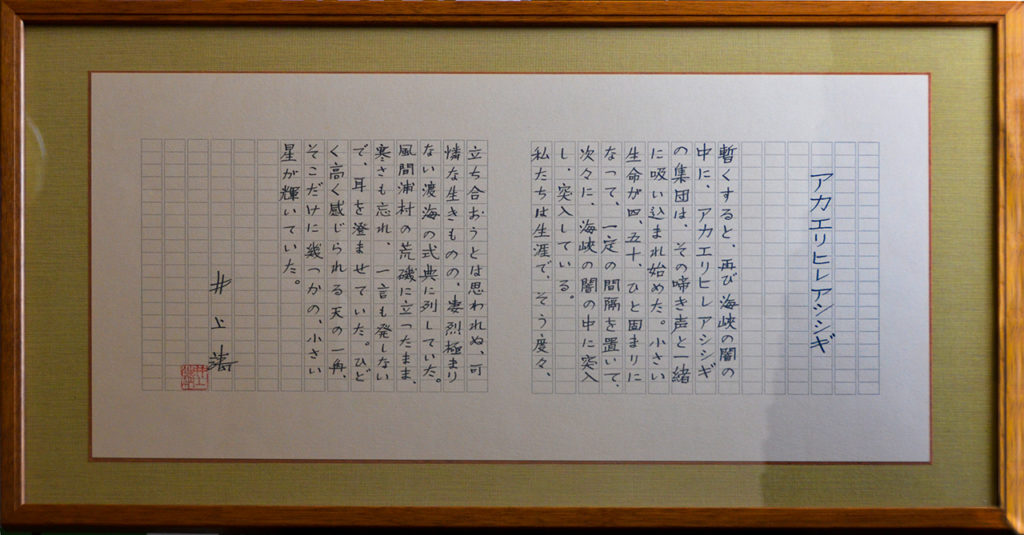 アカエリヒレアシシギ
暫くすると、再び海峡の闇の
中に、アカエリヒレアシシギ
の集団は、その啼き声と一緒
に吸い込まれ始めた。小さい
生命が四、五十、ひと固まりに
なって、一定の間隔を置いて、
次々に、海峡の闇の中に突入
し、突入している。
私たちは生涯で、そう度々、
立ち合おうとは思われぬ、可
憐な生きものの、凄烈極まり
ない渡海の式典に列していた。
風間浦村の荒磯に立ったまま、
寒さも忘れ、一言も発しない
で、耳を澄ませていた。ひど
く高く感じられる天の一角、
そこだけに幾つかの、小さい
星が輝いていた。
井上靖